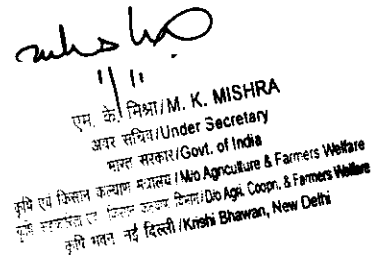 1/11
एम. के. मिश्रा/M. K. MISHRA
अवर सचिव/Under Secretary
भारत सरकार/Govt. of India
कृषि एवं किसान कल्याण मंत्रालय/M/o Agriculture & Farmers Welfare
कृषि सहकारिता एवं किसान कल्याण विभाग/D/o Agri. Coopn. & Farmers Welfare
कृषि भवन, नई दिल्ली/Krishi Bhawan, New Delhi